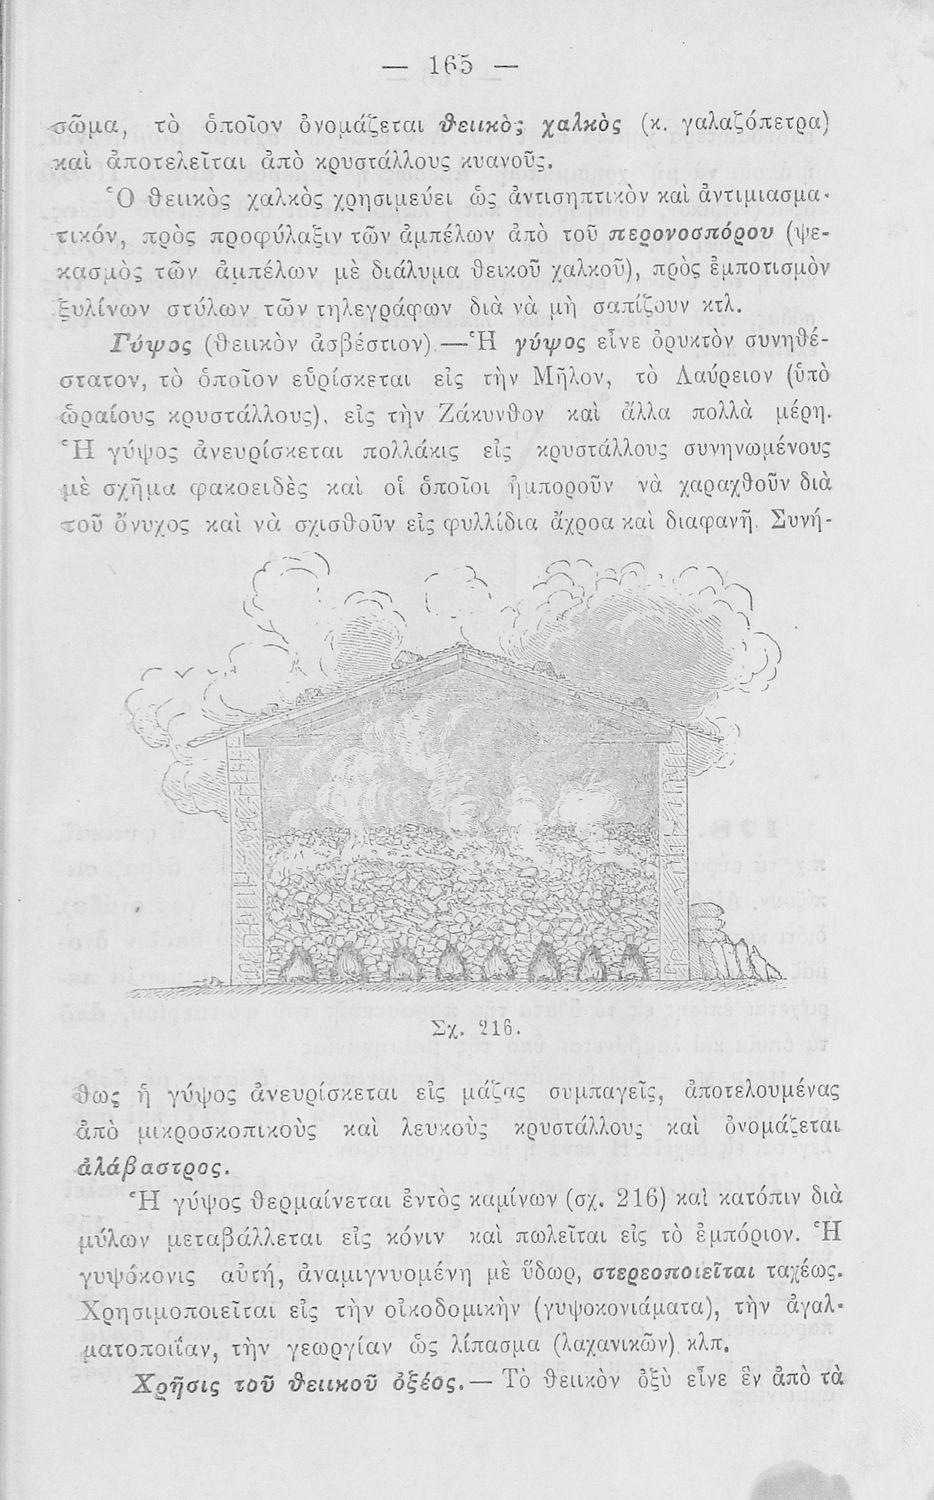 — 165 —
σῶμα, τὸ ὁποῖον ὀνομάζεται θειικὸς χαλκὸς (κ. γαλαζόπετρα)
καὶ ἀποτελεῖται ἀπὸ κρυστάλλους κυανοῦς.
Ὁ θειικὸς χαλκὸς χρησιμεύει ὡς ἀντισηπτικὸν καὶ ἀντιμιασμα-
τικόν, πρὸς προφύλαξιν τῶν ἀμπέλων ἀπὸ τοῦ περονοσπόρου (ψε-
κασμὸς τῶν ἀμπέλων μὲ διάλυμα θεικοῦ χαλκοῦ), πρὸς ἐμποτισμὸν
ξυλίνων στύλων τῶν τηλεγράφων διὰ νὰ μὴ σαπίζουν κτλ.
Γύψος (θειικὸν ἀσβέστιον).—Ἡ γύψος εἶνε ὀρυκτὸν συνηθέ-
στατον, τὸ ὁποῖον εὑρίσκεται εἰς τὴν Μῆλον, τὸ Λαύρειον (ὑπὸ
ὡραίους κρυστάλλους), εἰς τὴν Ζάκυνθον καὶ ἄλλα πολλὰ μέρη.
Ἡ γύψος ἀνευρίσκεται πολλάκις εἰς κρυστάλλους συνηνωμένους
μὲ σχῆμα φακοειδὲς καὶ οἱ ὁποῖοι ἠμποροῦν νὰ χαραχθοῦν διὰ
τοῦ ὄνυχος καὶ νὰ σχισθοῦν εἰς φυλλίδια ἄχροα καὶ διαφανῆ. Συνή-
Σχ. 216.
θως ἡ γύψος ἀνευρίσκεται εἰς μάζας συμπαγεῖς, ἀποτελουμένας
ἀπὸ μικροσκοπικοὺς καὶ λευκοὺς κρυστάλλους καὶ ὀνομάζεται
ἀλάβαστρος.
Ἡ γύψος θερμαίνεται ἐντὸς καμίνων (σχ. 216) καὶ κατόπιν διὰ
μύλων μεταβάλλεται εἰς κόνιν καὶ πωλεῖται εἰς τὸ ἐμπόριον. Ἡ
γυψόκονις αὐτή, ἀναμιγνυομένη μὲ ὕδωρ, στερεοποιεῖται ταχέως.
Χρησιμοποιεῖται εἰς τὴν οἰκοδομικὴν (γυψοκονιάματα), τὴν ἀγαλ-
ματοποιΐαν, τὴν γεωργίαν ὡς λίπασμα (λαχανικῶν) κλπ.
Χρῆσις τοῦ θειικοῦ ὀξέος.— Τὸ θειικὸν ὀξὺ εἶνε ἓν ἀπὸ τὰ